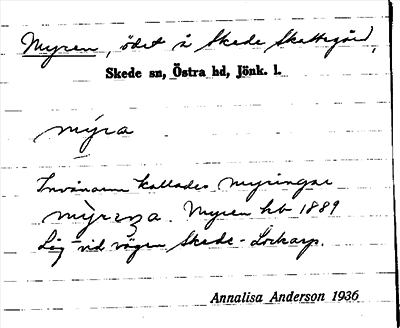 Myren, ödet å Skede Skattegård,
Skede sn, Östra hd, Jönk. l.
myra
Invånarna kallades myringar
myreṇa. Myren hb 1889
Låg vid vägen Skede - Lockarp.
Annalisa Anderson 1936